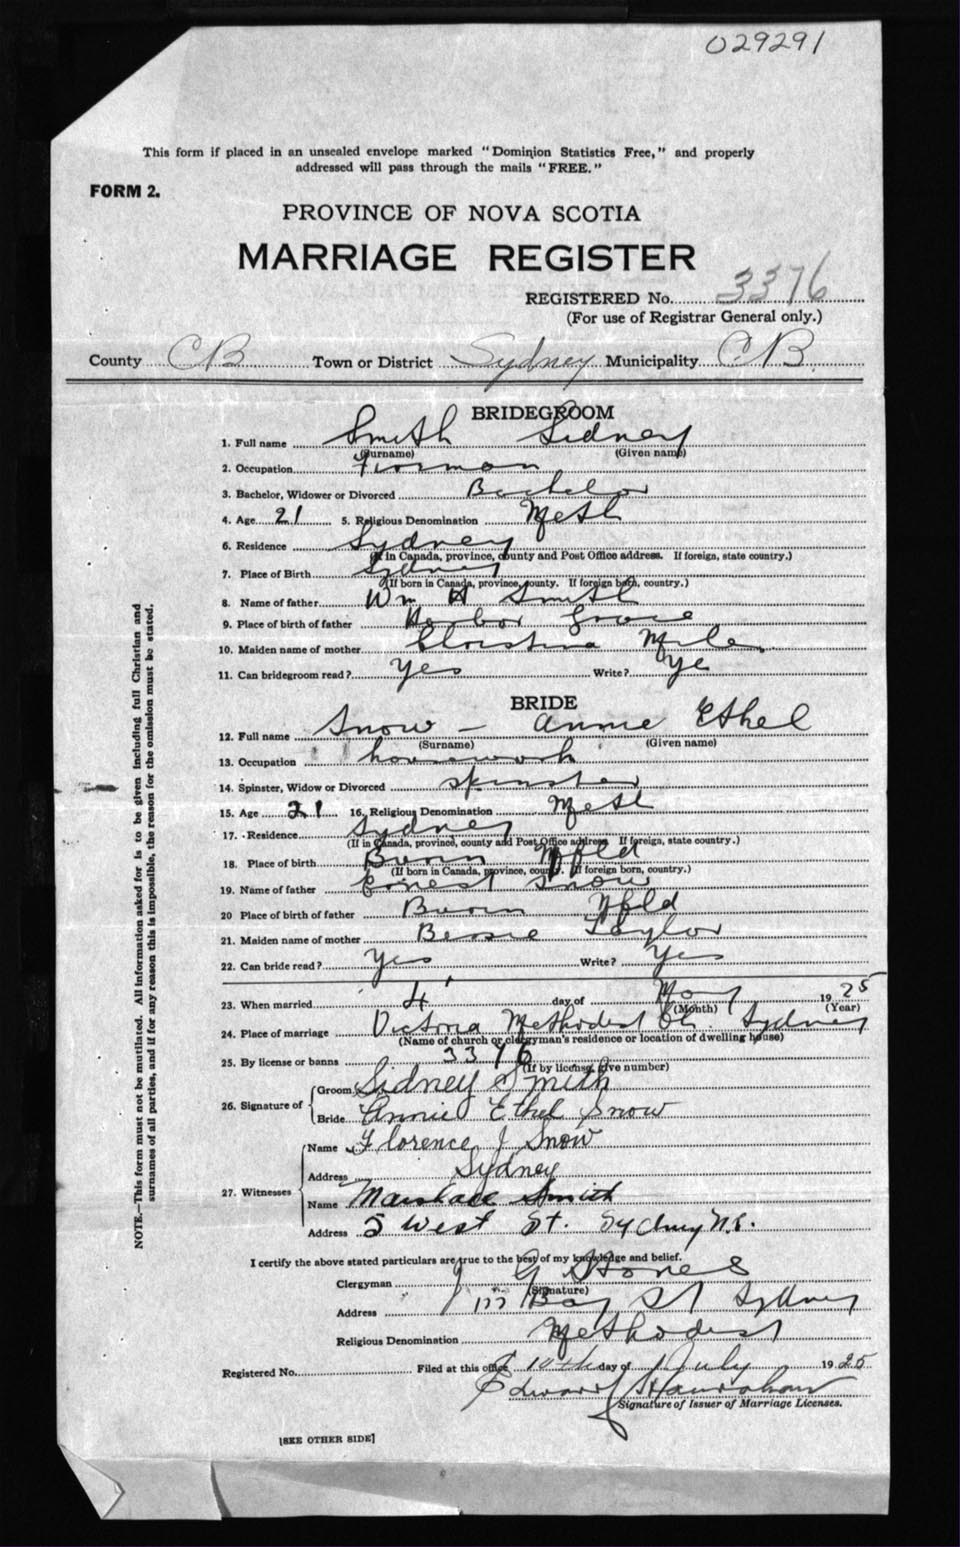 029291
This form if placed in an unsealed envelope marked "Dominion Statistics Free," and properly
addressed will pass through the mails "FREE."
FORM 2.
PROVINCE OF NOVA SCOTIA
MARRIAGE REGISTER
REGISTERED No. 3376
(For use of Registrar General only.)
County CB Town or District Sydney Municipality CB
BRIDEGROOM
1. Full name Smith Sidney
(Surname) (Given name)
2. Occupation
3. Bachelor, Widower or Divorced Bachelor
4. Age 21 5. Religious Denomination Meth
6. Residence Sydney
(If in Canada, province, county and Post Office address. If foreign, state country.)
7. Place of Birth Sydney
(If born in Canada, province, county. If foreign born, country.)
8. Name of father Wm H Smith
9. Place of birth of father Harbor Grace
10. Maiden name of mother Christina
11. Can bridegroom read? Yes Write? Ye
BRIDE
12. Full name Snow - Annie Ethel
(Surname) (Given name)
13. Occupation housework
14. Spinster, Widow or Divorced spinster
15. Age 21 16. Religious Denomination Meth
17. Residence Sydney
(If in Canada, province, county and Post Office address If foreign, state country.)
18. Place of birth Burin Nfld
(If born in Canada, province, county. If foreign born, country.)
19. Name of father Ernest Snow
20 Place of birth of father Burin Nfld
21. Maiden name of mother Bessie Taylor
22. Can bride read? Yes Write? Yes
23. When married 4 day of May 1925
(Month) (Year)
24. Place of marriage Victoria Methodist Ch. Sydney
(Name of church or clergyman's residence or location of dwelling house)
25. By license or banns 3376
(If by license, give number)
26. Signature of Groom Sidney Smith
Bride Annie Ethel Snow
27. Witnesses Name Florence J Snow
Address Sydney
Name Smith
Address 5 West St. Sydney N.S.
I certify the above stated particulars are true to the best of my knowledge and belief.
Clergyman J G Stones
(Signature)
Address Bay St Sydney
Religious Denomination Methodist
Registered No. Filed at this office 10th day of July 1925
Edward
Signature of Issuer of Marriage Licenses.
[SEE OTHER SIDE]
NOTE.—This form must not be mutilated. All information asked for is to be given including full Christian and
surnames of all parties, and if for any reason this is impossible, the reason for the omission must be stated.